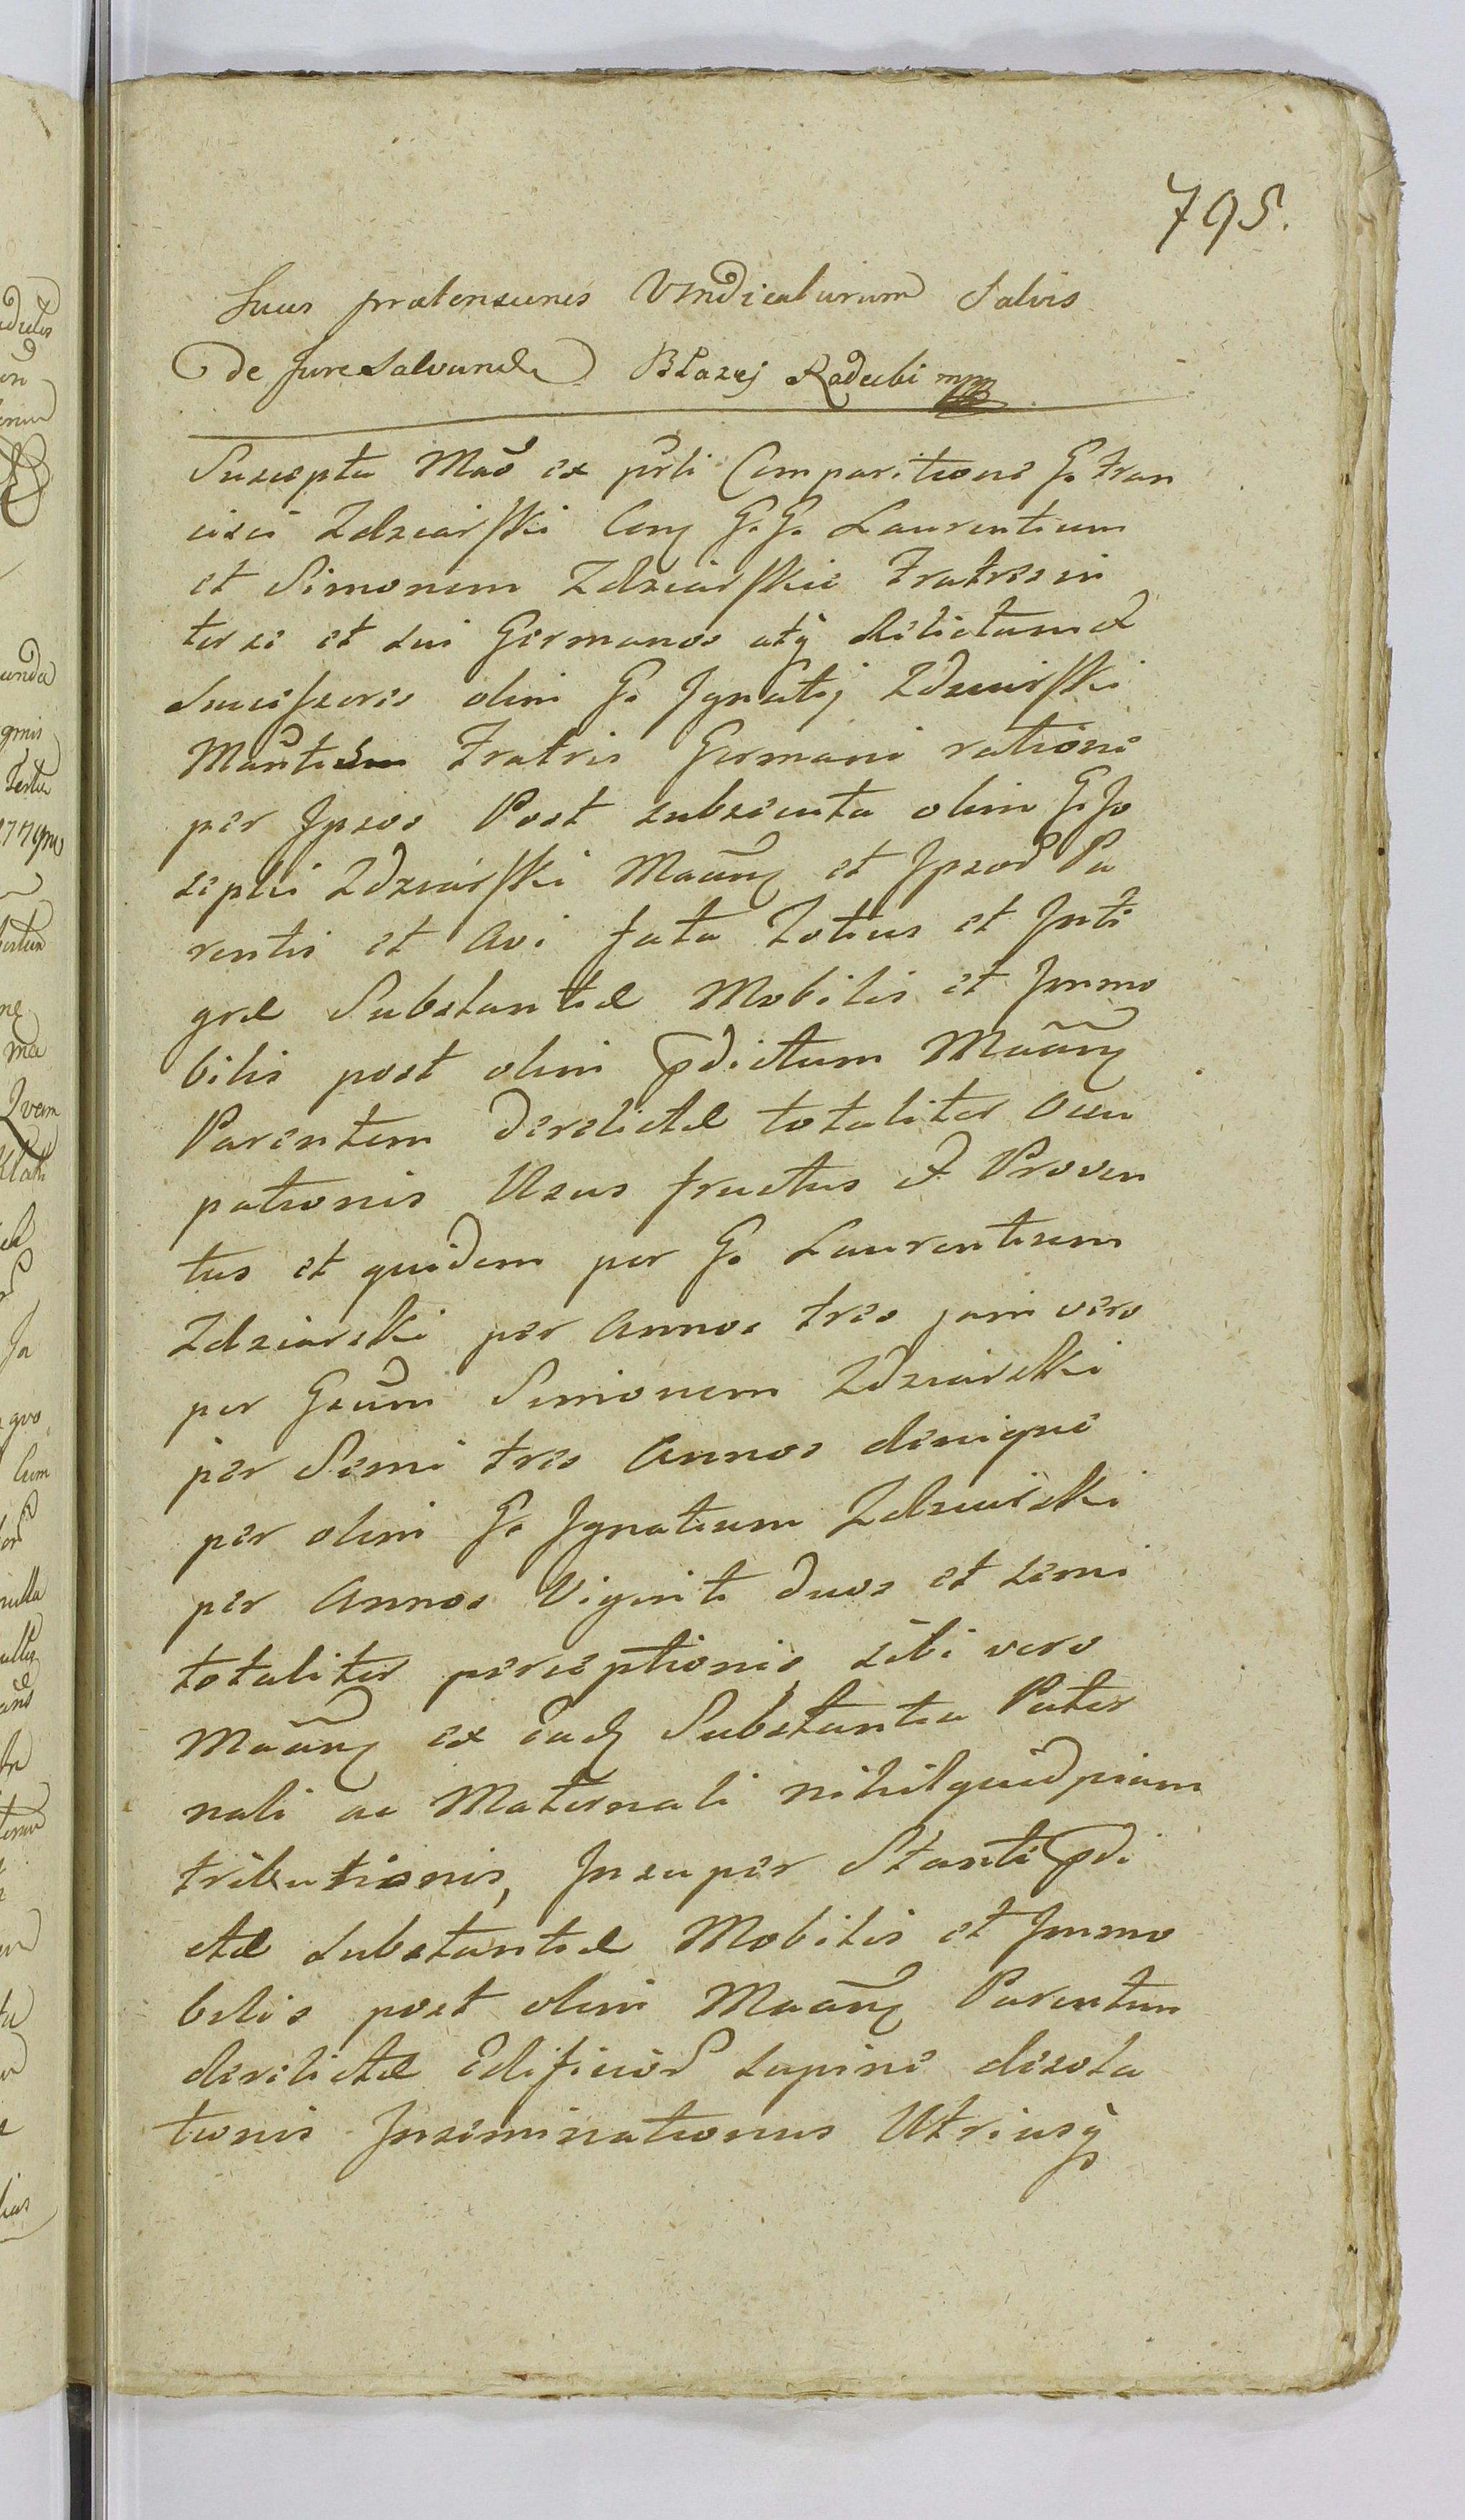 795.
Suas praetensiones Vindicaturum Salvis
De Jure Salvandis Błazej Radecki mpp
Suscepta Mão ex prsti Comparitione G. Fran
cisci Zdziarsski Conq G. G. Laurentium
et Simonem Zdziarsskie Fratres in
ter se et sui Germanos atq Relictum et
Successores olim G. Jgnatij Zdziarsski
Mantis Fratris Germani ratione
per Jpsos Post subsecuta olim G. Jo
sephi Zdziarsski Maãnq et Jpsor Pa
rentis et Avi fata Totius et Jnte
grae Substantiae Mobilis et Jmmo
bilis post olim pdictum Maãnq
Parentem derelictae totaliter Occu
pationis Usus fructus et Proven
tus et quidem per G. Laurentium
Zdziarski per Annos tres jam vero
per Gsum Simonem Zdziarski
per Semi tres Annos denique
per olim G. Jgnatium Zdziarski
per Annos Viginti duos et semi
totaliter perceptionis, sibi vero
Maãnq ex Eadq Substantia Pater
nali ac Maternali nihilquidpiam
tributionis, Jnsuper Stante pdi
ctae substantiae Mobilis et Jmmo
bilis post olim Maãnq Parentem
derelictae Edificior supine desola
tionis Jnseminationus Utriusq